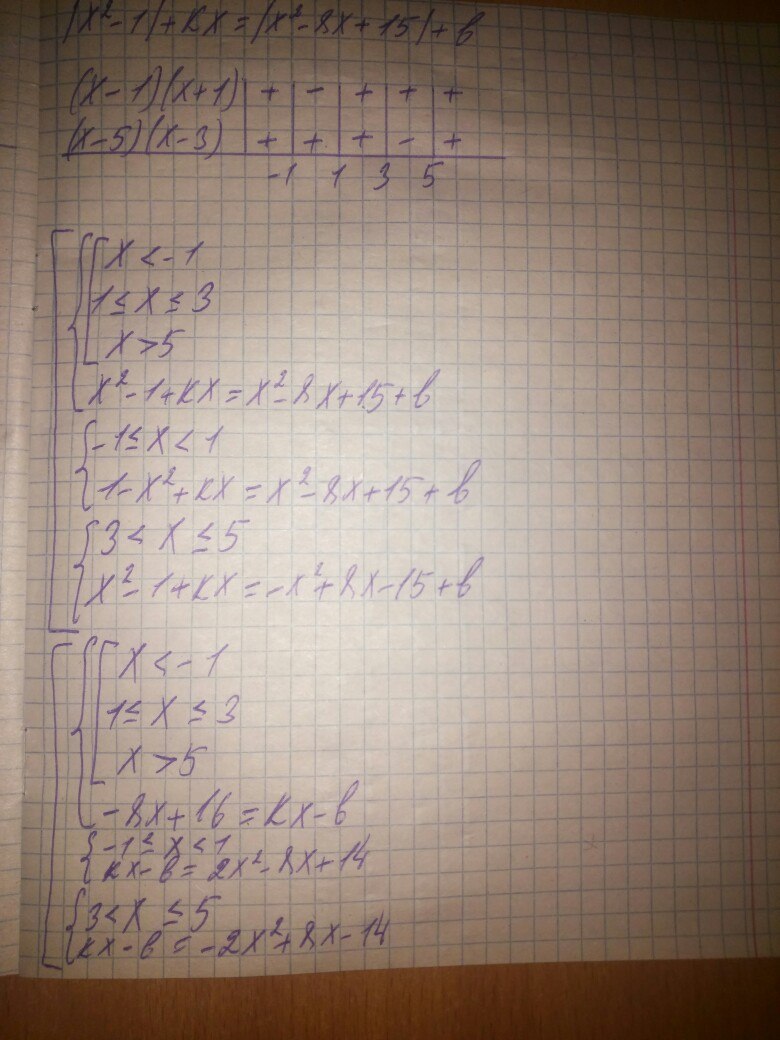 |x²-1|+kx=|x²-8x+15|+b
(x-1)(x+1) | + | - | + | + | +
(x-5)(x-3) | + | + | + | - | +
-1 1 3 5
x<-1
1≤x≤3
x>5
x²-1+kx=x²-8x+15+b
-1≤x<1
1-x²+kx=x²-8x+15+b
3<x≤5
x²-1+kx=-x²+8x-15+b
x<-1
1≤x≤3
x>5
-8x+16=kx-b
-1≤x<1
kx-b=2x²-8x+14
3<x≤5
kx-b=-2x²+8x-14